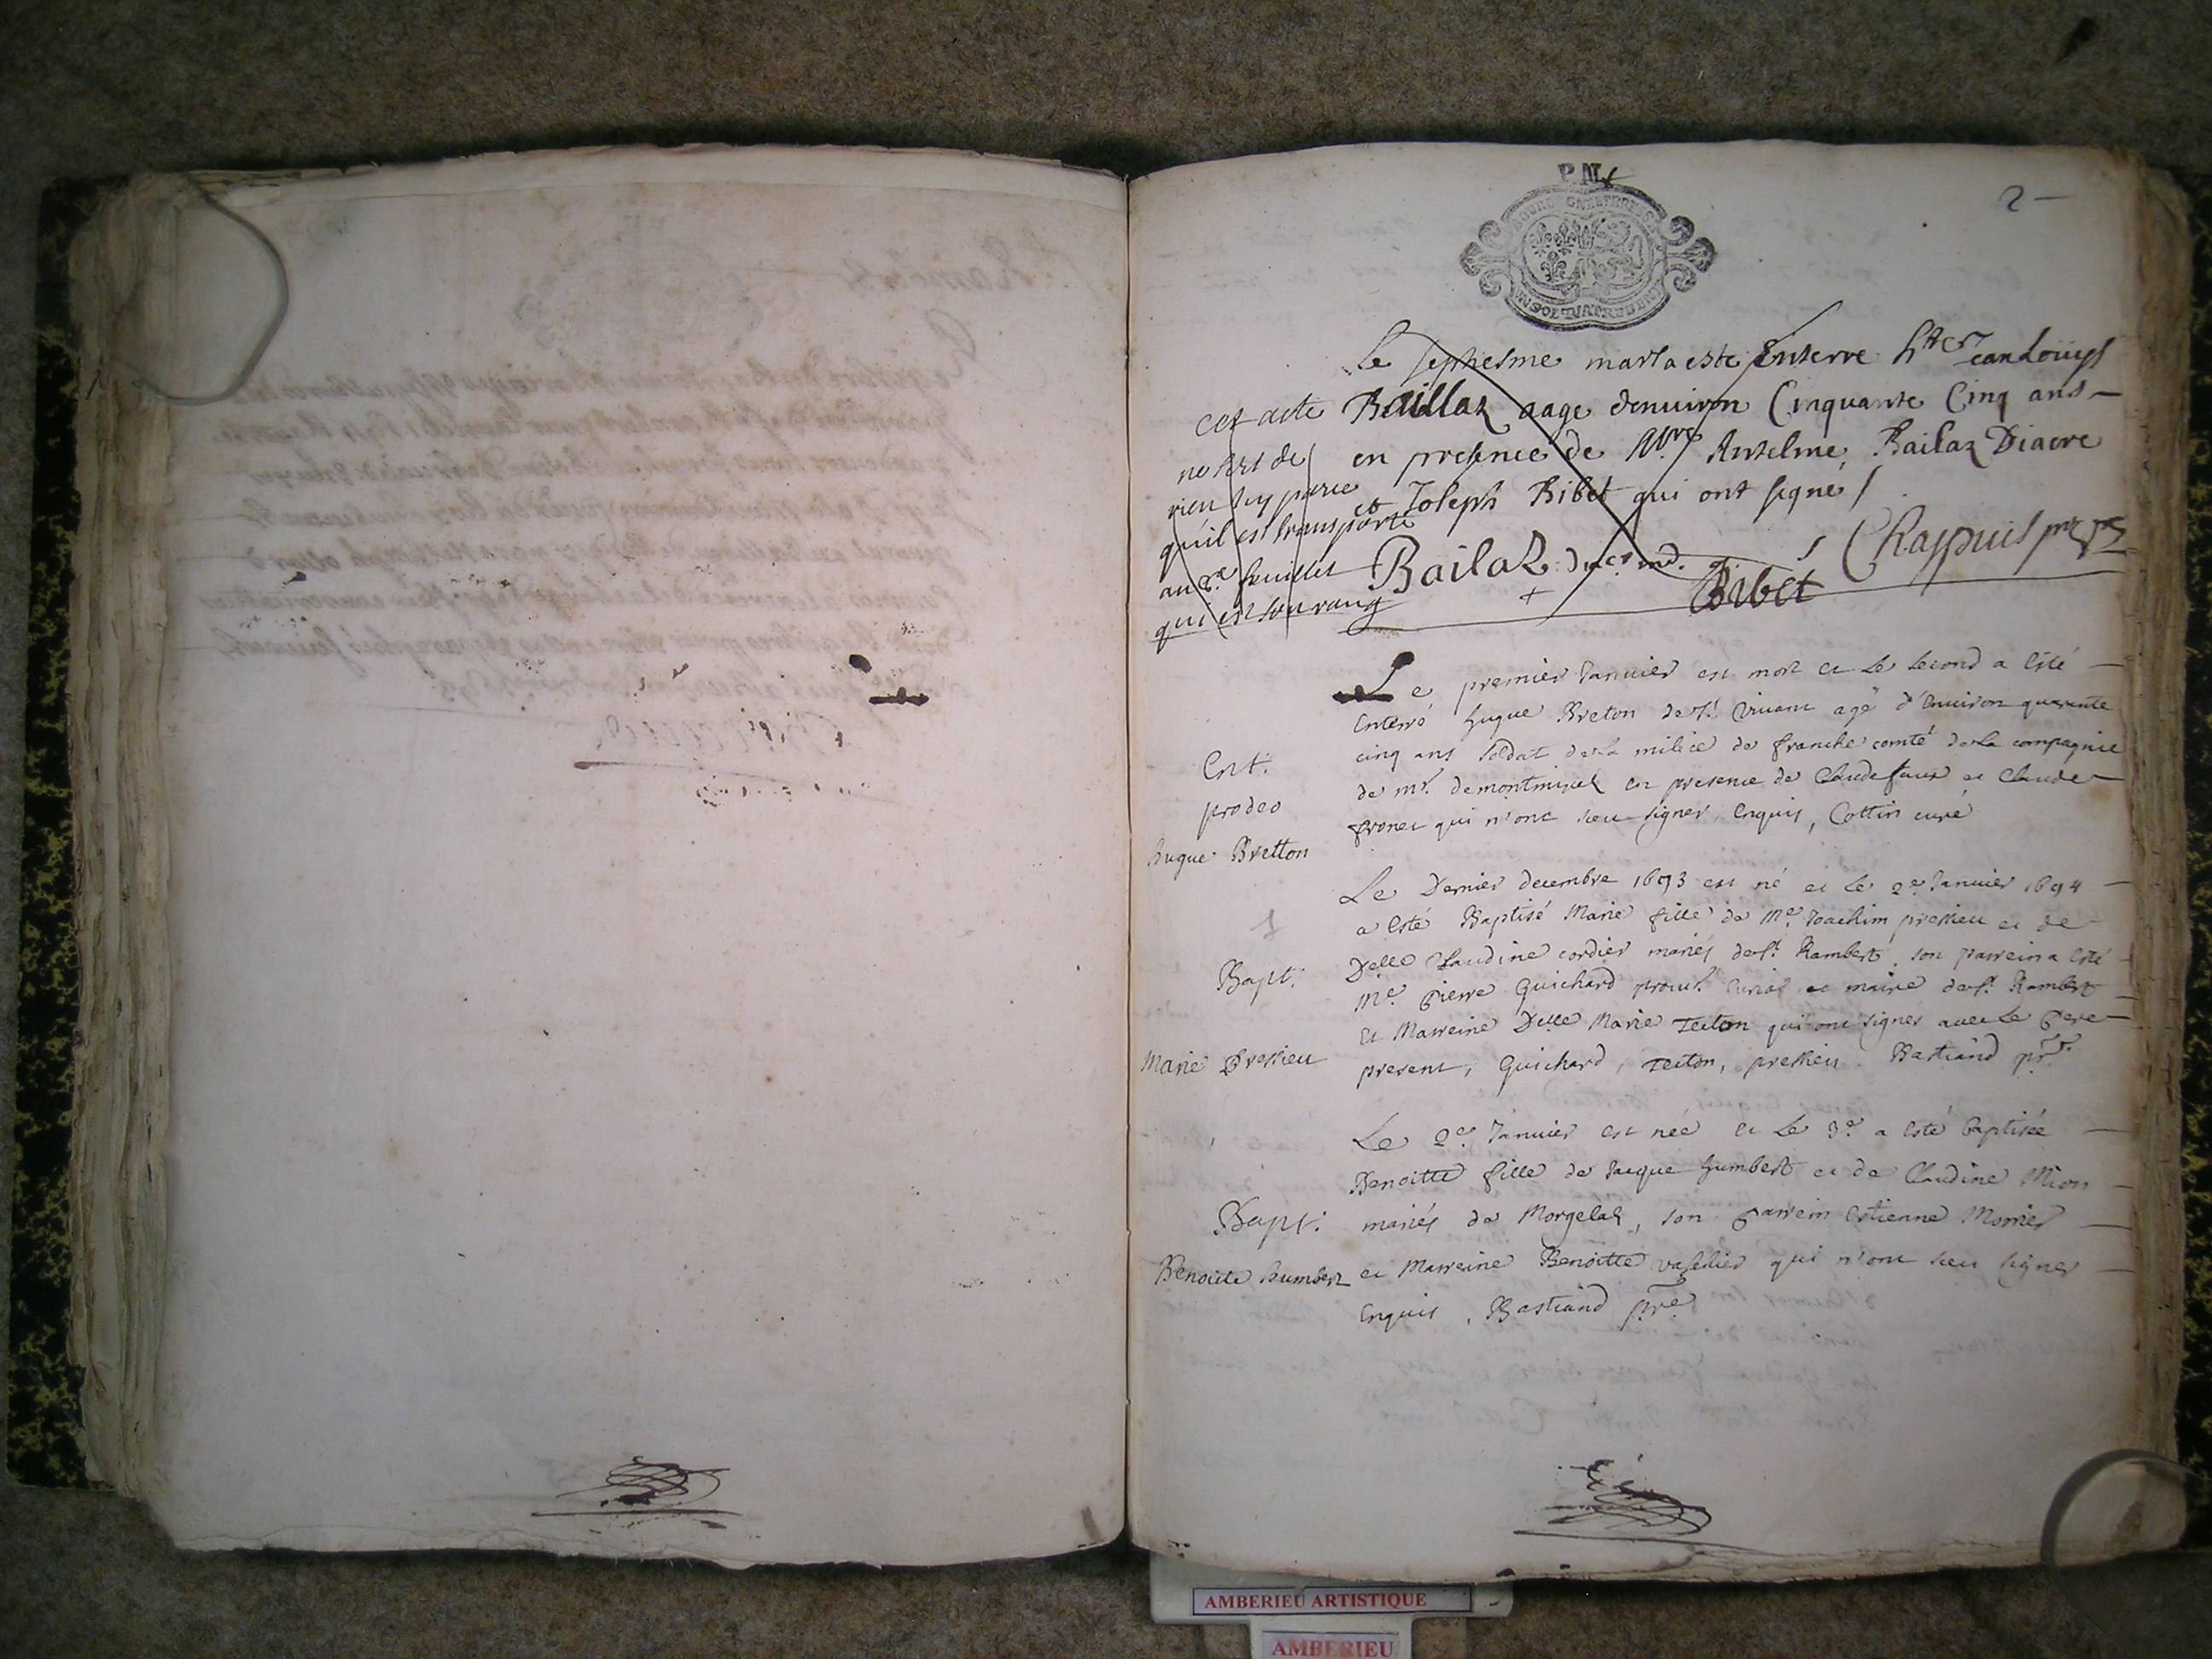 P. M.
2
Le sephesme mars a esté Enterre hster Jean Louys
Baillaz aage denuiron Cinquante Cinq ans
en presence de Mre Anthelme Bailaz Diacre
et Joseph Ribet qui ont signe /
Bailaz ind. Ribet Chappuis
cet acte
ne sert de
rien icy parce
qu'il est transporté
au 8.e feuillet
qui est son rang
Le premier Janvier est mort et Le second a esté
Enterré hugue Breton de st vivant agé d'environ quarante
cinq ans soldat de La milice de franche comté de La compagnie
de mr. de en presence de Claude faure et Claude
qui n'ont sceu signer Enquis, Cottin curé
Ent:
pro deo
hugue Bretton
Le Dernier decembre 1693 est né et Le 2e Janvier 1694
a esté Baptisé Marie fille de Me Joachim pressieu et de
Delle Claudine cordier mariés de st Rambert, son parrein a esté
Me. Pierre Guichard procur. curial et maire de st. Rambert
et Marreine Delle Marie Teston qui ont signés avec Le Pere
present, Guichard, Teston, pressieu Bastiand ptre.
Bapt:
Marie Pressieu
Le 2e Janvier est née et Le 3e a esté Baptisée
Benoitte fille de Jacque humbert et de Claudine Mion
mariés de Morgelaz, son Parrein Estienne Morrier
et Marreine Benoitte vassilier qui n'ont sceu signer
Enquis, Bastiand ptre
Bapt:
Benoitte humbert
AMBERIEU ARTISTIQUE
AMBERIEU